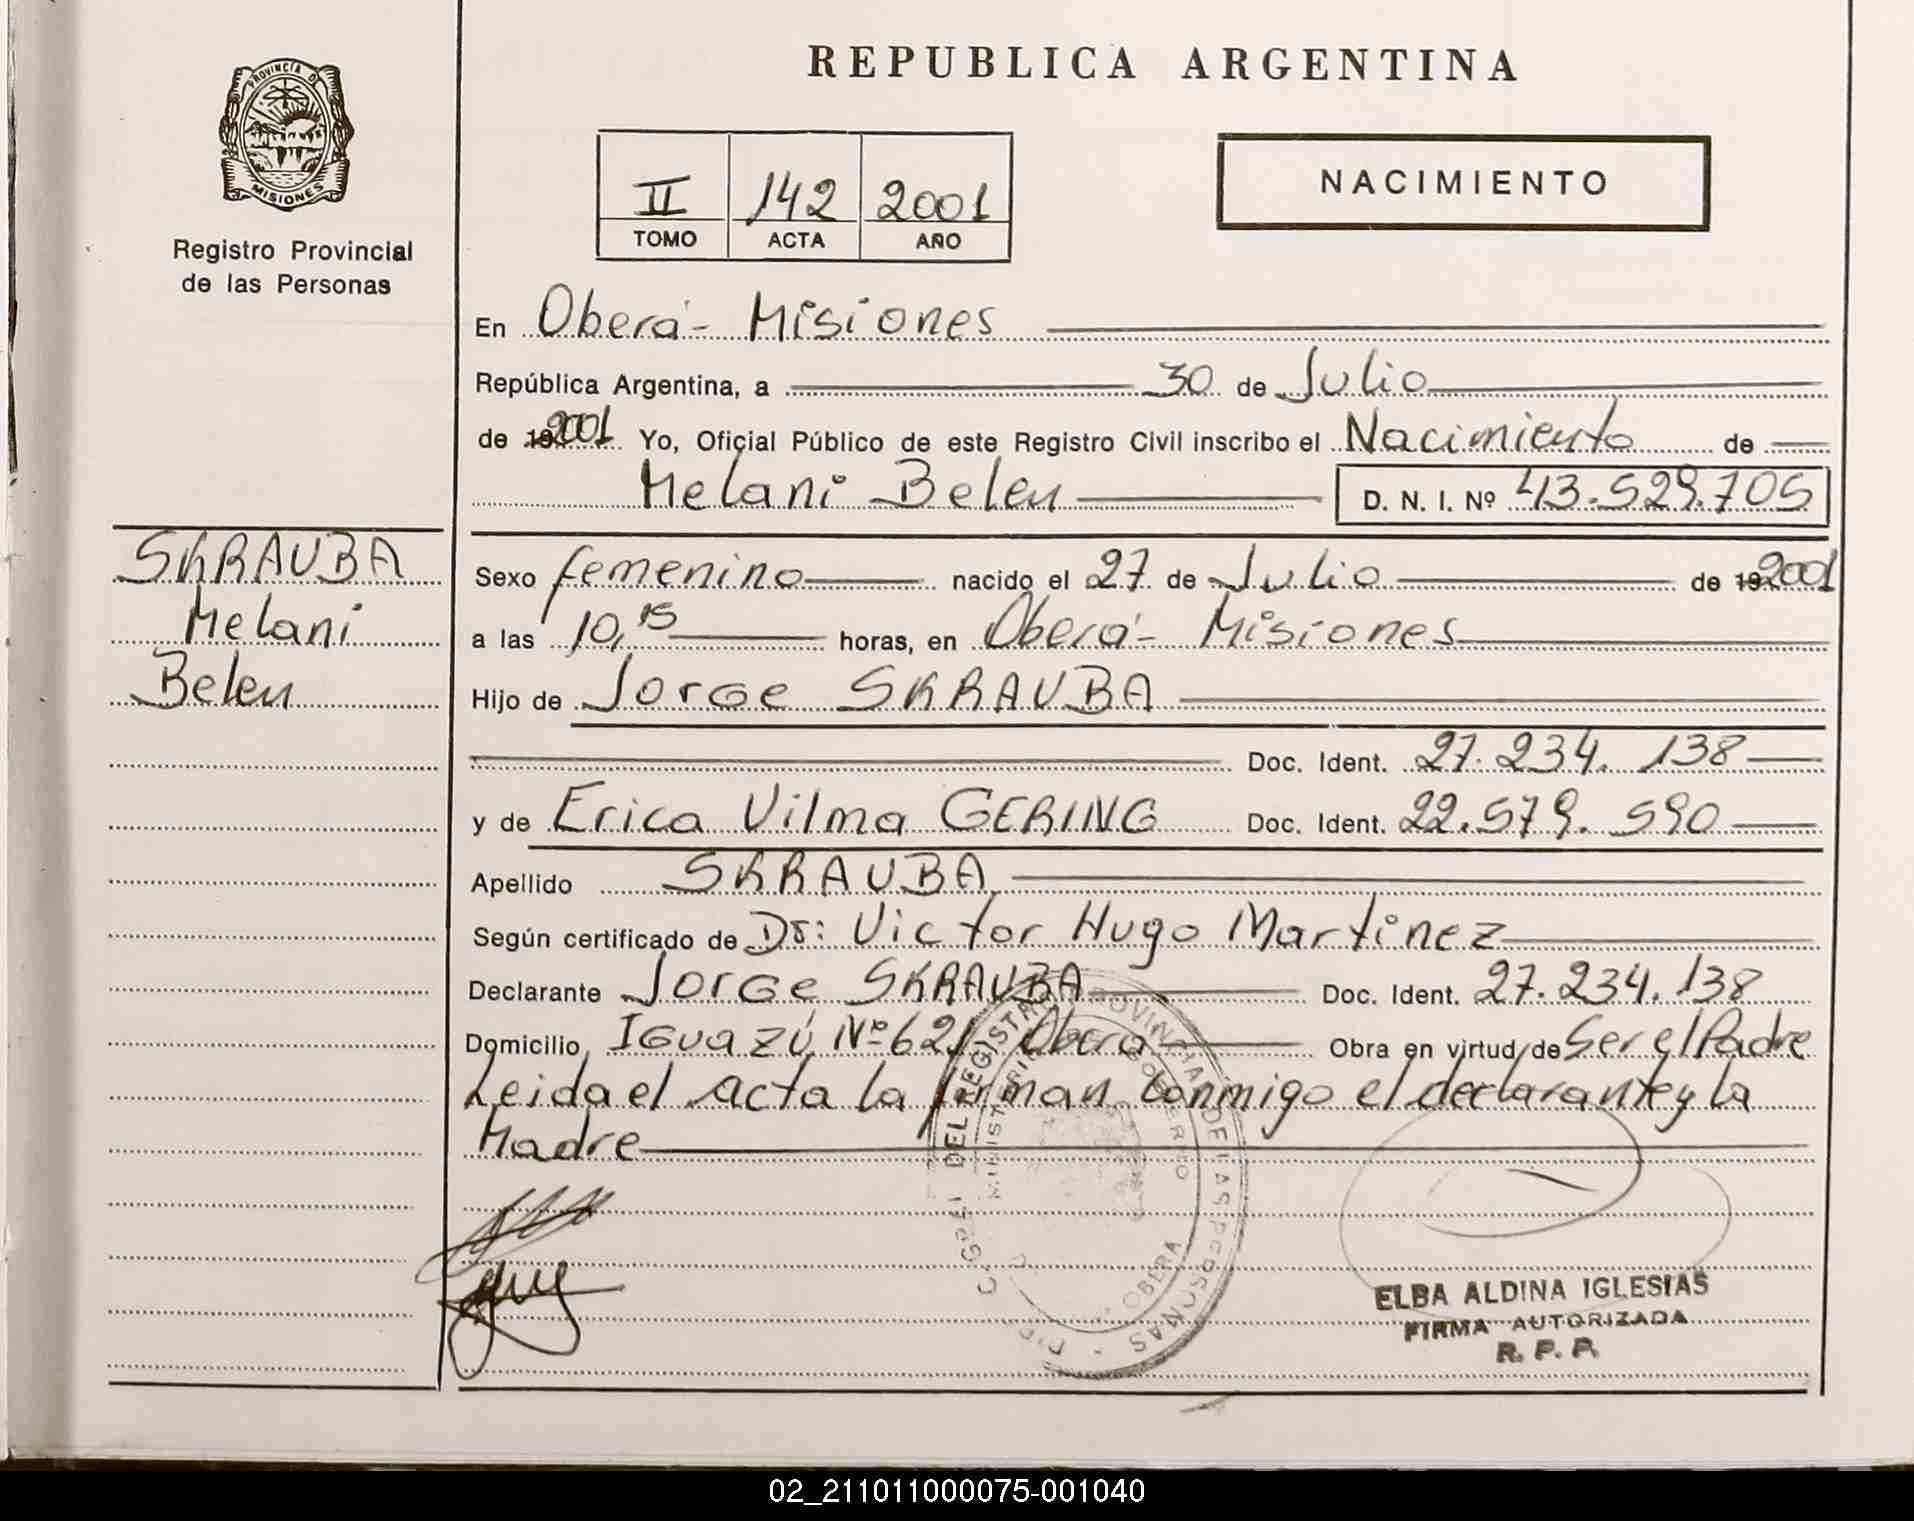 REPUBLICA ARGENTINA
PROVINCIA D
MISIONES
Registro Provincial
de las Personas
II 142 2001
TOMO ACTA AÑO
NACIMIENTO
En Oberá - Misiones
República Argentina, a 30 de Julio
de 19 2001 Yo, Oficial Público de este Registro Civil inscribo el Nacimiento de
Melani Belen D. N. I. Nº 43.529.705
SKRAUBA
Melani
Belen
Sexo femenino nacido el 27 de Julio de 19 2001
a las 10,15 horas, en Oberá - Misiones
Hijo de Jorge SKRAUBA
Doc. Ident. 27.234.138
y de Erica Vilma GERING Doc. Ident. 22.579.590
Apellido SKRAUBA
Según certificado de Dr: Victor Hugo Martinez
Declarante Jorge SKRAUBA Doc. Ident. 27.234.138
Domicilio Iguazú Nº 621 - Oberá Obra en virtud de Ser el Padre
Leida el acta la firman conmigo el declarante y la
Madre
DEL REGISTRO PROVINCIAL DE LAS PERSONAS
MINISTERIO GOBIERNO
OBERA
ELBA ALDINA IGLESIAS
FIRMA AUTORIZADA
R. P. P.
02_211011000075-001040